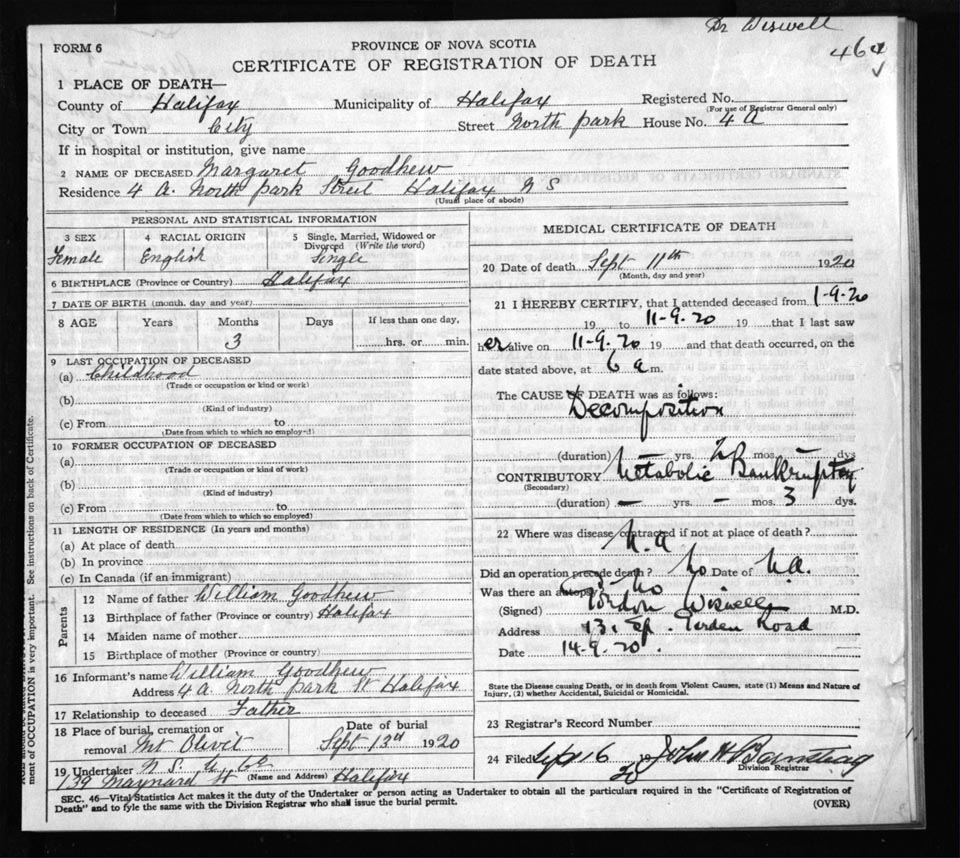 Dr Wiswell
464
FORM 6
PROVINCE OF NOVA SCOTIA
CERTIFICATE OF REGISTRATION OF DEATH
1 PLACE OF DEATH—
County of Halifax Municipality of Halifax Registered No.
(For use of Registrar General only)
City or Town City Street North Park House No. 4 A
If in hospital or institution, give name
2 NAME OF DECEASED Margaret Goodhew
Residence 4 A. North Park Street Halifax N S
(Usual place of abode)
PERSONAL AND STATISTICAL INFORMATION
3 SEX 4 RACIAL ORIGIN 5 Single, Married, Widowed or Divorced (Write the word)
Female English Single
6 BIRTHPLACE (Province or Country) Halifax
7 DATE OF BIRTH (month, day and year)
8 AGE Years Months Days If less than one day,
3 hrs. or min.
9 LAST OCCUPATION OF DECEASED
(a) Childhood
(Trade or occupation or kind or work)
(b)
(Kind of industry)
(c) From to
(Date from which to which so employed)
10 FORMER OCCUPATION OF DECEASED
(a)
(Trade or occupation or kind of work)
(b)
(Kind of industry)
(c) From to
(Date from which to which so employed)
11 LENGTH OF RESIDENCE (In years and months)
(a) At place of death
(b) In province
(c) In Canada (if an immigrant)
Parents
12 Name of father William Goodhew
13 Birthplace of father (Province or country) Halifax
14 Maiden name of mother
15 Birthplace of mother (Province or country)
16 Informant's name William Goodhew
Address 4 A. North Park St Halifax
17 Relationship to deceased Father
18 Place of burial, cremation or removal Mt Olivit Date of burial Sept 13th 1920
19 Undertaker N S. U Co
139 Maynard St (Name and Address) Halifax
MEDICAL CERTIFICATE OF DEATH
20 Date of death Sept 11th 1920
(Month, day and year)
21 I HEREBY CERTIFY, that I attended deceased from 1-9-20
19 to 11-9-20 19 that I last saw
her alive on 11-9-20 19 and that death occurred, on the
date stated above, at 6 a m.
The CAUSE OF DEATH was as follows:
Decomposition
(duration) — yrs. 2 mos. — dys
CONTRIBUTORY Metabolic Bankruptcy
(Secondary)
(duration) — yrs. — mos. 3 dys.
22 Where was disease contracted if not at place of death?
N.A
Did an operation precede death? No Date of N.A.
Was there an autopsy? No
(Signed) Wiswell M.D.
Address Road
Date 14-9-20.
State the Disease causing Death, or in death from Violent Causes, state (1) Means and Nature of
Injury, (2) whether Accidental, Suicidal or Homicidal.
23 Registrar's Record Number
24 Filed Sept 16 20 John H
Division Registrar
SEC. 46—Vital Statistics Act makes it the duty of the Undertaker or person acting as Undertaker to obtain all the particulars required in the "Certificate of Registration of
Death" and to fyle the same with the Division Registrar who shall issue the burial permit. (OVER)
ment of OCCUPATION is very important. See instructions on back of Certificate.